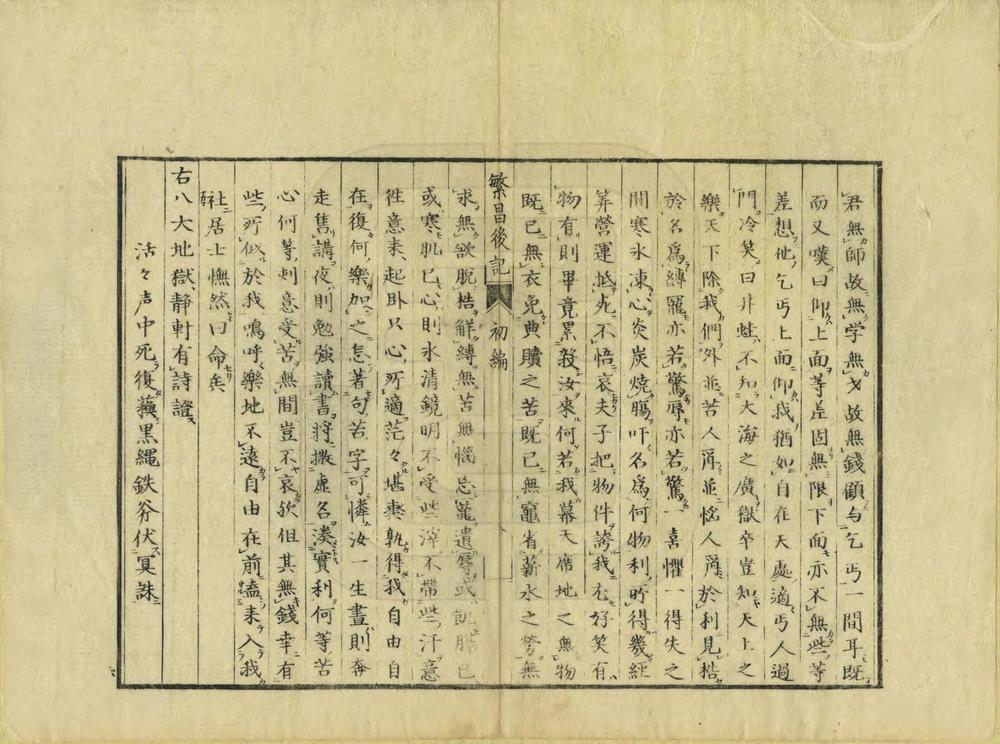 君無師故無学無才故無錢顧与乞丐一間耳既
而又嘆曰仰上面等差固無限下面亦不無些等
差想他乞丐上面仰我猶如自在天處適丐人過
門冷笑曰井蛙不知大海之廣獄卒豈知天上之
樂天下除我們外並苦人爾並惱人爾於利見梏
於名爲縛寵亦若驚辱亦若驚一喜懼一得失之
間寒氷凍心炎炭燒腸吁名爲何物利所得幾経
筭營運抵死不悟哀夫子把物件誇我尤好笑有
物有則畢竟累殺汝來何若我幕天席地之無物
既已無衣免典贖之苦既已無竈省薪水之勞無
繁昌後記 初編
求無欲脱梏解縛無苦無惱忘寵遺辱或飢腸已
或寒肌已心則氷清鏡明不受些滓不帶些汗意
徃意来起卧只心所適茫々堪輿孰得我自由自
在復何樂加之怎著句苦字可憐汝一生晝則奔
走售講夜則勉強讀書將撒虛名湊實利何等苦
心何等刺意受苦無間豈不哀欤但其無錢幸有
些所似於我嗚呼樂地不遠自由在前嗑来入我
社居士憮然曰命矣
右八大地獄静軒有詩證
沽々声中死復蘓黒縄鉄斧伏冥誅